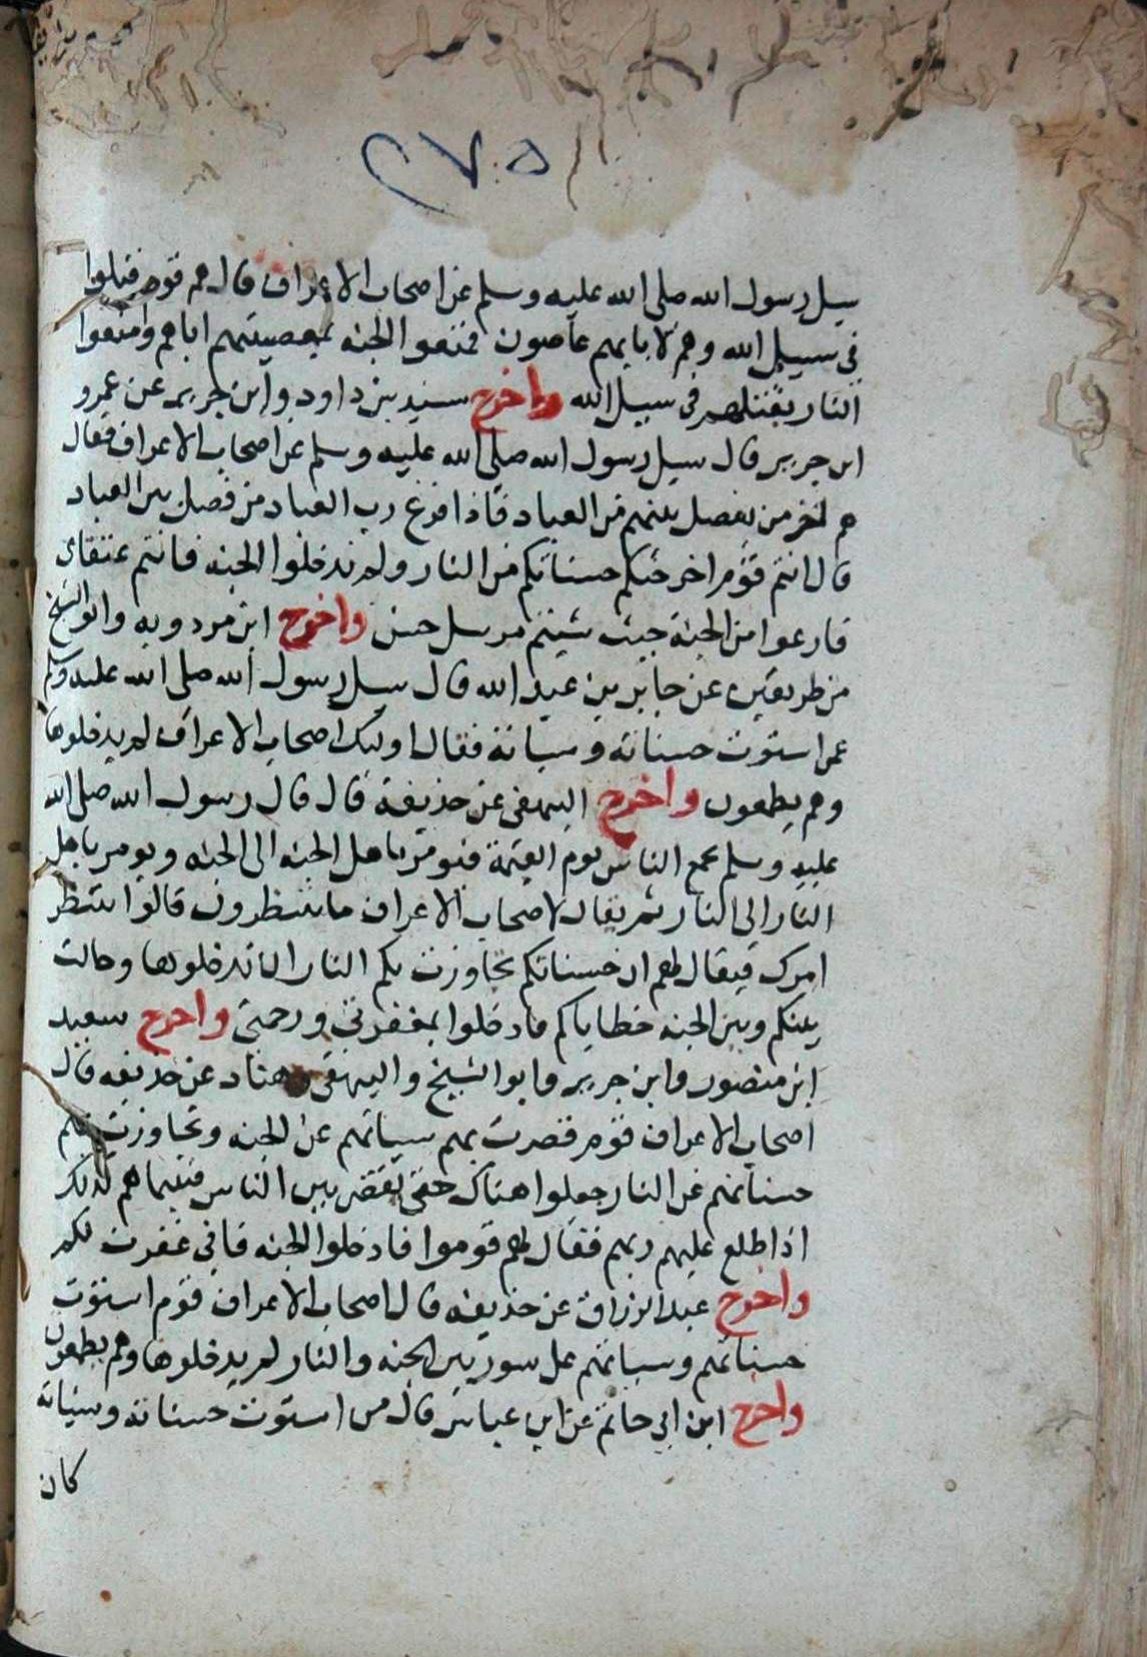 ٢٧٥
سيل رسول الله صلى الله عليه وسلم عن اصحاب الاعراف قال هم قوم قتلوا
في سبيل الله وهم لابايهم عاصون فمنعوا الجنه بمعصيتهم اباهم ومنعوا
النار بقتلهم في سبيل الله واخرج سنيد بن داود وابن جرير عن عمرو
ابن جرير قال سيل رسول الله صلى الله عليه وسلم عن اصحاب الاعراف فقال
هم اخر من يفصل بينهم من العباد فاذا فرغ رب العباد من فصل بين العباد
قال انتم قوم اخرجتكم حسناتكم من النار ولم تدخلوا الجنه فانتم عتقاى
فارعوا من الجنة حيث شيتم مرسل حسن واخرج ابن مردويه وابو الشيخ
من طريقين عن جابر بن عبد الله قال سيل رسول الله صلى الله عليه وسلم
عمن استوت حسناته وسياته فقال اوليك اصحاب الاعراف لم يدخلوها
وهم يطمعون واخرج البيهقى عن حذيفة قال قال رسول الله صلى الله
عليه وسلم يجمع الناس يوم القيمة فيومر باهل الجنه الى الجنه ويومر باهل
النار الى النار ثم يقال لاصحاب الاعراف ما تنتظرون قالوا ننتظر
امرك فيقال لهم ان حسناتكم تجاوزت بكم النار ان تدخلوها وحالت
بينكم وبين الجنه خطاياكم فادخلوا بمغفرتي ورحمتي واخرج سعيد
ابن منصور وابن جرير وابو الشيخ والبيهقى وهناد عن حذيفه قال
اصحاب الاعراف قوم قصرت بهم سياتهم عن الجنه وتجاوزت بهم
حسناتهم عن النار جعلوا هناك حتى يقضى بين الناس فبينما هم كذلك
اذ اطلع عليهم ربهم فقال لهم قوموا فادخلوا الجنه فاني غفرت لكم
واخرج عبد الرزاق عن حذيفه قال اصحاب الاعراف قوم استوت
حسناتهم وسياتهم على سور بين الجنه والنار لم يدخلوها وهم يطمعون
واخرج ابن ابي حاتم عن ابن عباس قال من استوت حسناته وسياته
كان